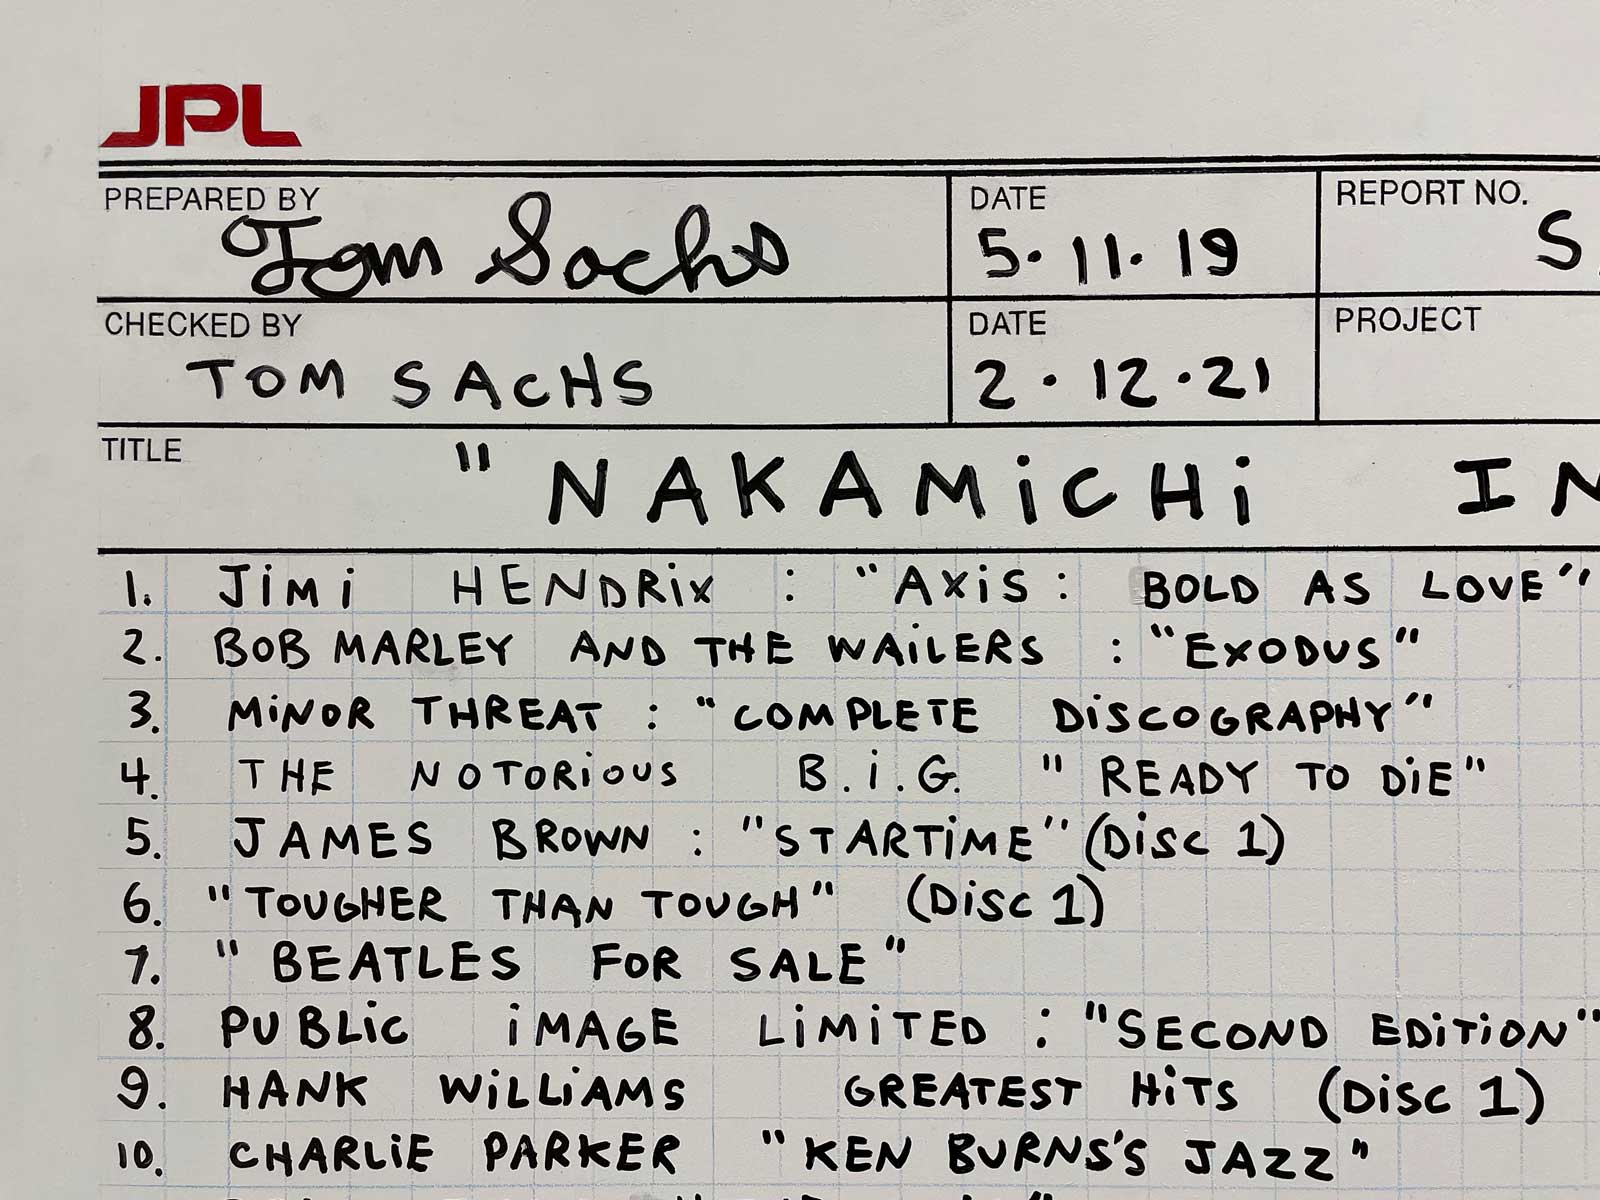 JPL
PREPARED BY Tom Sachs DATE 5.11.19 REPORT NO. S
CHECKED BY TOM SACHS DATE 2.12.21 PROJECT
TITLE "NAKAMiCHi IN
1. JiMi HENDRiX : "AXiS: BOLD AS LOVE"
2. BOB MARLEY AND THE WAiLERS : "EXODUS"
3. MiNOR THREAT : "COMPLETE DiSCOGRAPHY"
4. THE NOTORiOUS B.i.G. "READY TO DiE"
5. JAMES BROWN : "STARTiME" (DiSC 1)
6. "TOUGHER THAN TOUGH" (DiSC 1)
7. "BEATLES FOR SALE"
8. PUBLiC iMAGE LiMiTED : "SECOND EDiTiON"
9. HANK WiLLiAMS GREATEST HiTS (DiSC 1)
10. CHARLiE PARKER "KEN BURNS'S JAZZ"